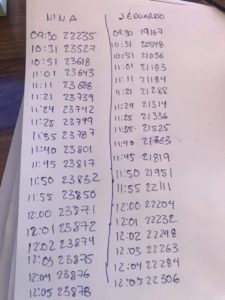 NINA J EDUARDO
09:30 22235 09:30 19167
10:31 23527 10:31 20548
10:51 23618 10:51 21056
11:01 23643 11:01 21183
11:11 23688 11:11 21184
11:21 23739 11:21 21288
11:24 23742 11:24 21314
11:25 23749 11:25 21336
11:35 23787 11:35 21525
11:40 23801 11:40 21663
11:45 23817 11:45 21819
11:50 23832 11:50 21951
11:55 23850 11:55 22111
12:00 23871 12:00 22204
12:01 23872 12:01 22232
12:02 23874 12:02 22248
12:03 23875 12:03 22263
12:04 23876 12:04 22284
12:05 23878 12:05 22306